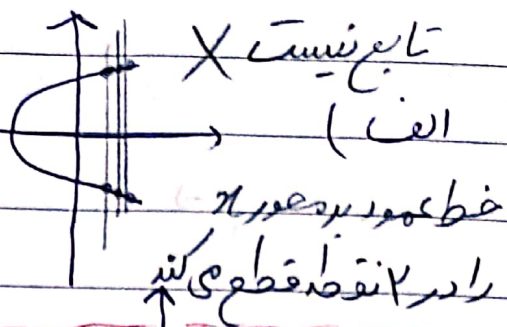 تابع نیست X
الف )
خط عمود بر محور x
را در ۲ نقطه قطع می کند